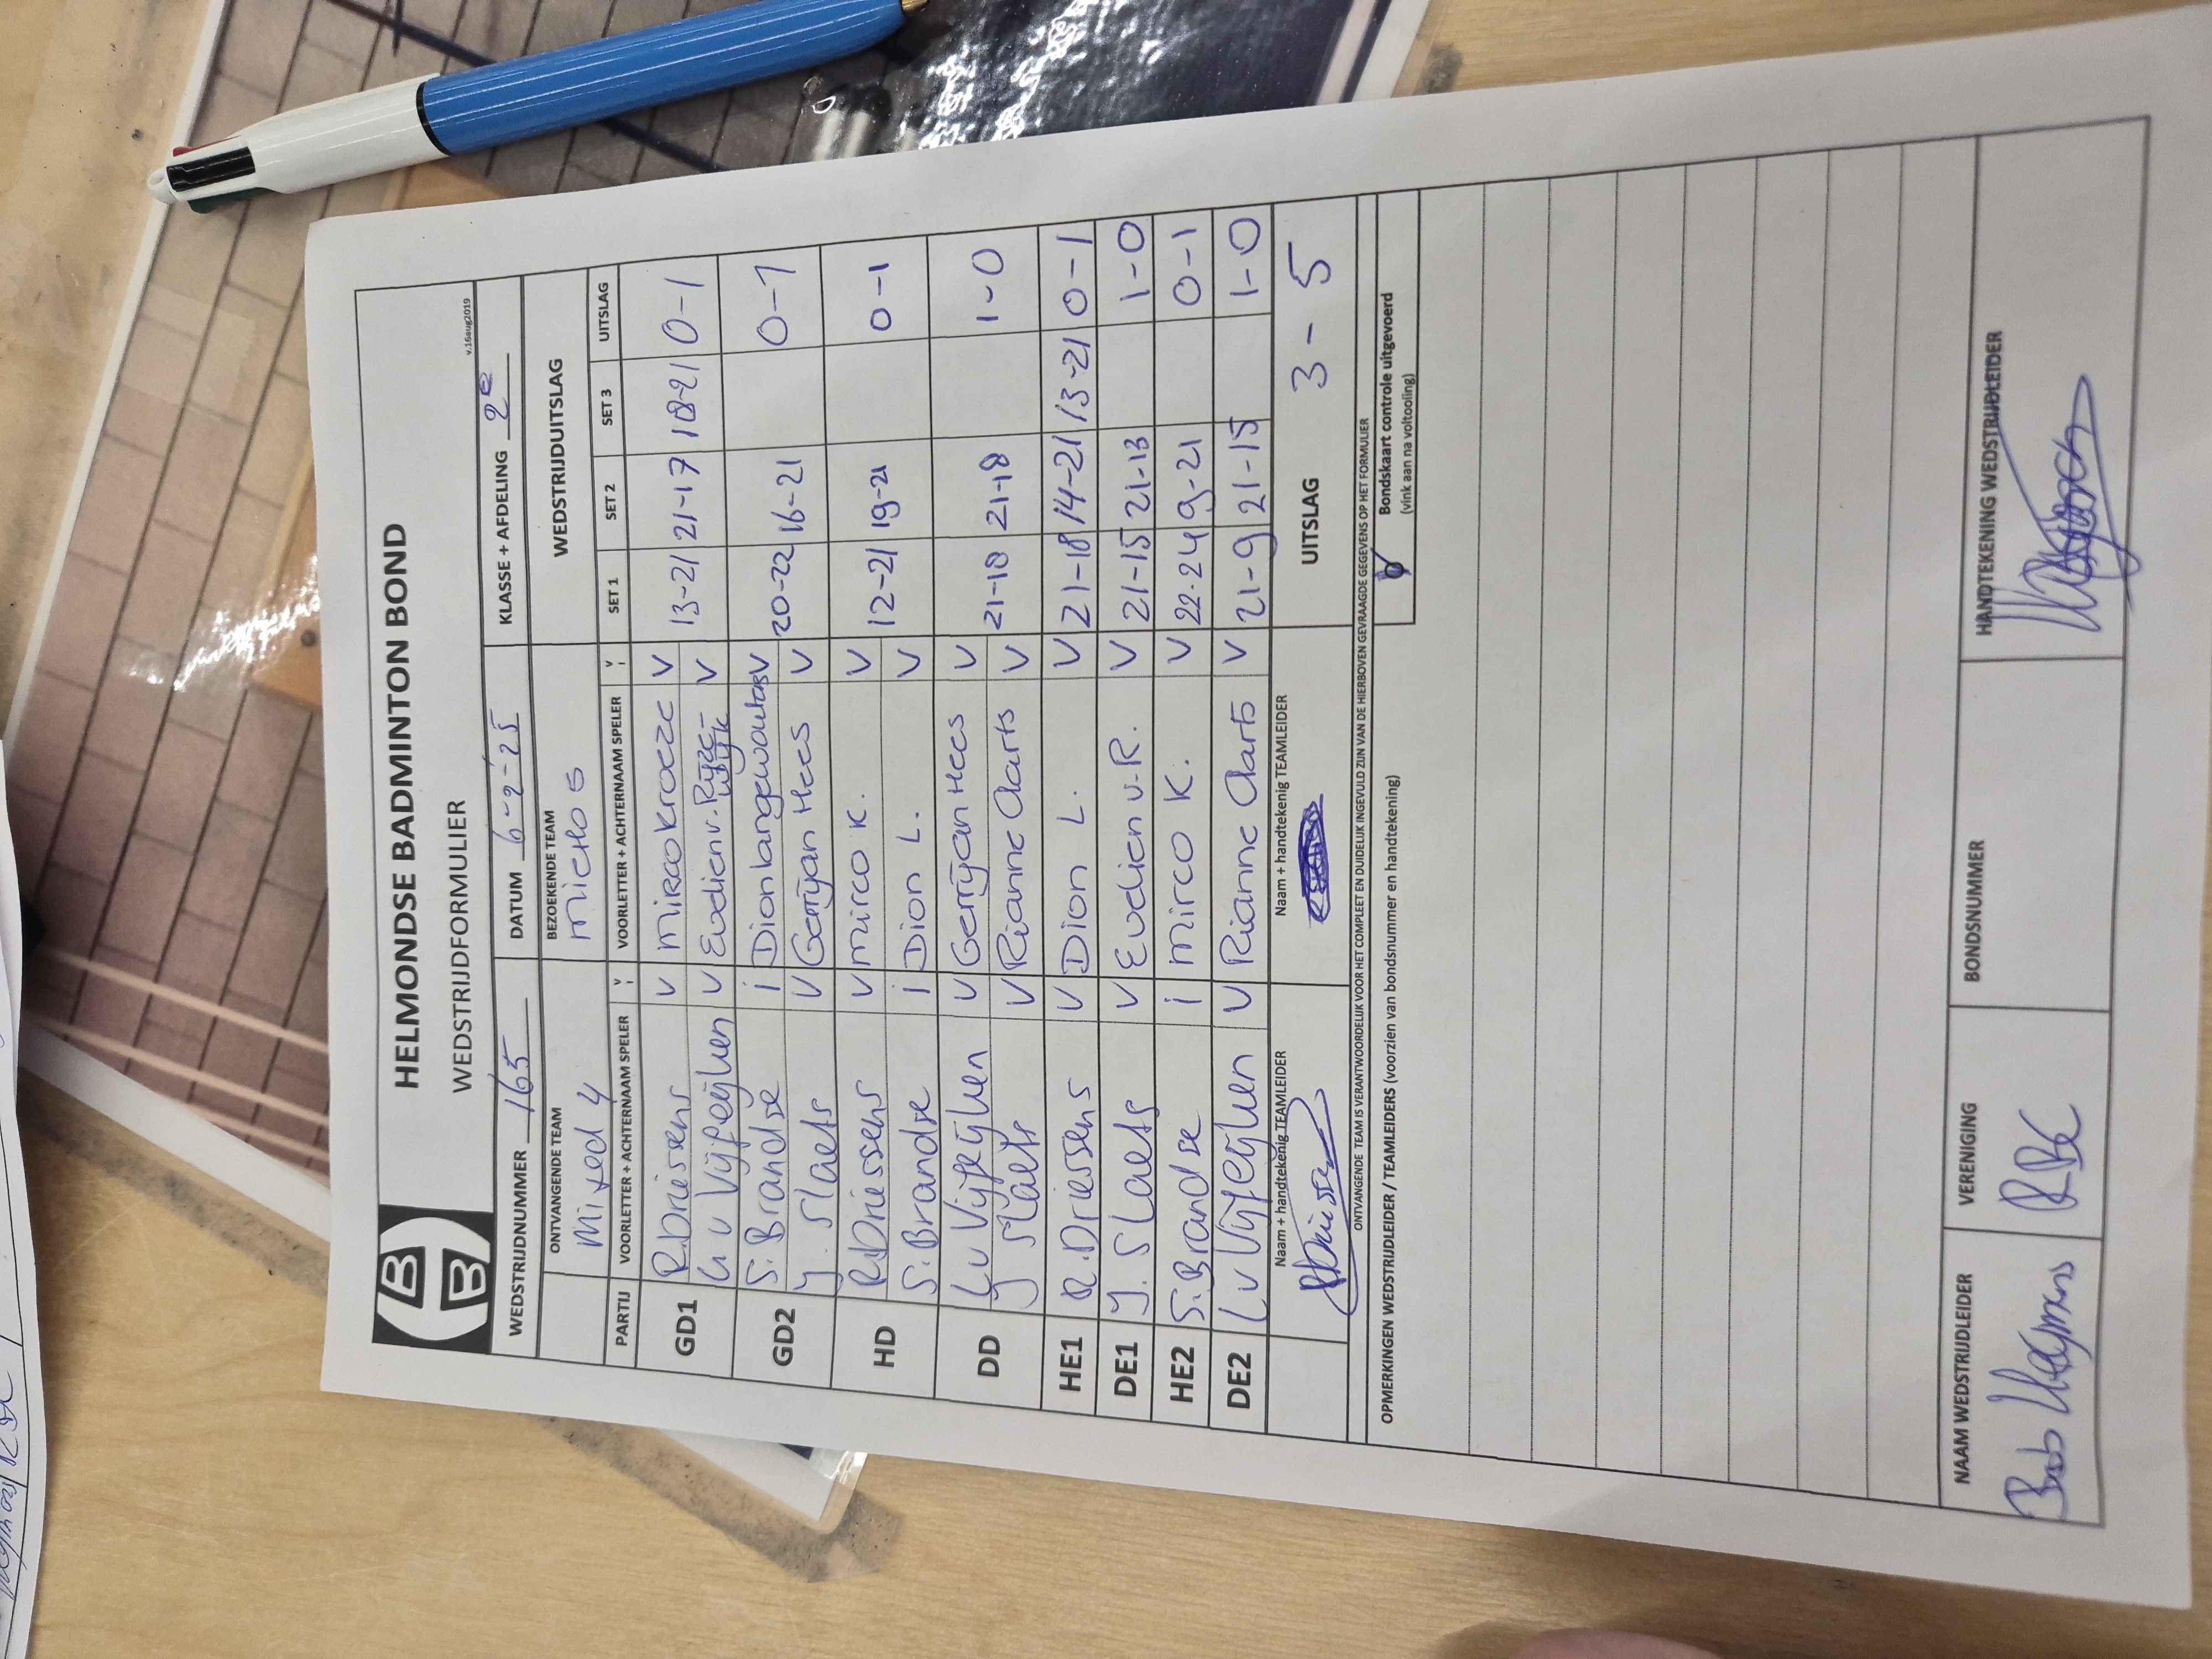 HELMONDSE BADMINTON BOND
WEDSTRIJDFORMULIER
v.16aug2019
WEDSTRIJDNUMMER 165 DATUM 6-2-25 KLASSE + AFDELING 2e
ONTVANGENDE TEAM BEZOEKENDE TEAM WEDSTRIJDUITSLAG
Mixed 4 Micho 5
PARTIJ VOORLETTER + ACHTERNAAM SPELER V VOORLETTER + ACHTERNAAM SPELER V SET 1 SET 2 SET 3 UITSLAG
GD1 R. Driessens V Mirco Kroeze V 13-21 21-17 18-21 0-1
v Vijfeijken V Evodien v. Rijze- V
wijk
GD2 S. Brandse i Dion Langewouters V 20-22 16-21 0-1
J. Slaets V Gerrijan Hees V
HD R. Driessens V Mirco K. V 12-21 19-21 0-1
S. Brandse i Dion L. V
DD L v Vijfeijken V Gerrijan Hees V 21-18 21-18 1-0
J Slaets V Rianne Aarts V
HE1 R. Driessens V Dion L. V 21-18 14-21 13-21 0-1
DE1 J. Slaets V Evodien v. R. V 21-15 21-13 1-0
HE2 S. Brandse i Mirco K. V 22-24 9-21 0-1
DE2 L v Vijfeijken V Rianne Aarts V 21-9 21-15 1-0
Naam + handtekenig TEAMLEIDER Naam + handtekenig TEAMLEIDER UITSLAG 3 - 5
ONTVANGENDE TEAM IS VERANTWOORDELIJK VOOR HET COMPLEET EN DUIDELIJK INGEVULD ZIJN VAN DE HIERBOVEN GEVRAAGDE GEGEVENS OP HET FORMULIER
OPMERKINGEN WEDSTRIJDLEIDER / TEAMLEIDERS (voorzien van bondsnummer en handtekening) Bondskaart controle uitgevoerd
(vink aan na voltooiing)
NAAM WEDSTRIJDLEIDER VERENIGING BONDSNUMMER HANDTEKENING WEDSTRIJDLEIDER
Bob RBC